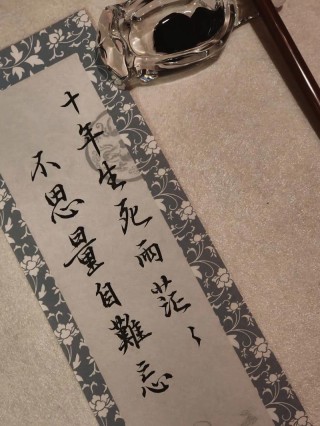 十年生死两茫々
不思量自難忘